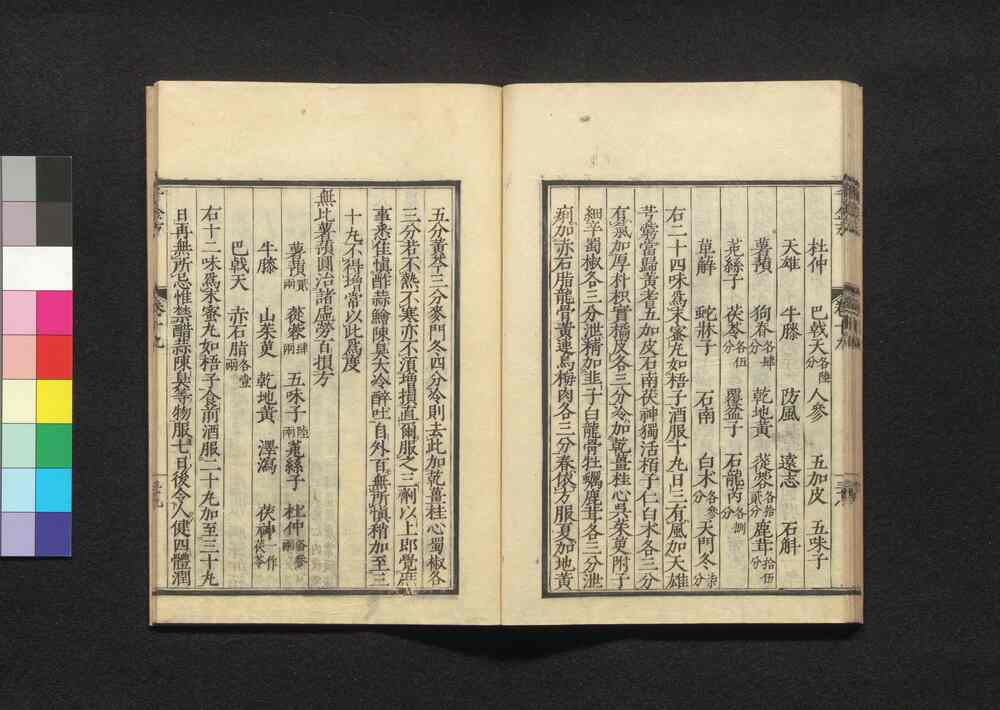 杜仲 巴戟天各陸分 人參 五加皮 五味子
天雄 牛膝 防風 遠志 石斛
薯蕷 狗脊各肆分 乾地黃 蓯蓉各拾貳分 鹿茸拾伍分
菟絲子 茯苓各伍分 覆盆子 石龍芮各捌分
萆薢 虵牀子 石南 白术各參分 天門冬柒分
右二十四味爲末蜜丸如梧子酒服十丸日三有風加天雄
芎藭當歸黃耆五加皮石南茯神獨活栢子仁白术各三分
有氣加厚朴枳實橘皮各三分冷加乾薑桂心吳茱萸附子
細辛蜀椒各三分泄精加韭子白龍骨牡蠣鹿茸各三分泄
痢加赤石脂龍骨黃連烏梅肉各三分春依方服夏加地黃
五分黃芩三分麥門冬四分冷則去此加乾薑桂心蜀椒各
三分若不熱不寒亦不須增損直爾服之三劑以上即覺
事悉佳慎酢蒜鱠陳臭大冷醉吐自外百無所慎稍加至三
十丸不得增常以此爲度
無比薯蕷圓治諸虛勞百損方
薯蕷貳兩 蓯蓉肆兩 五味子陸兩 菟絲子 杜仲各參兩
牛膝 山茱萸 乾地黃 澤瀉 茯神一作茯苓
巴戟天 赤石脂各壹兩
右十二味爲末蜜丸如梧子食前酒服二十丸加至三十丸
日再無所忌惟禁醋蒜陳臭等物服七日後令人健四體潤
卷十九